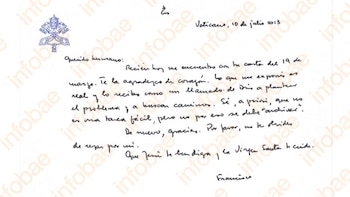 Vaticano, 10 de julio 2013
Querido hermano:
Recién hoy me encuentro con tu carta del 19 de
marzo. Te la agradezco de corazón. Lo que me exponés es
real y lo recibo como un llamado de Dios a plantear
el problema y a buscar caminos. Sé, a priori, que no
es una tarea fácil, pero no por eso se debe "archivar".
De nuevo, gracias. Por favor, no te olvides
de rezar por mí.
Que Jesús te bendiga y la Virgen Santa te cuide.
Francisco
infobae